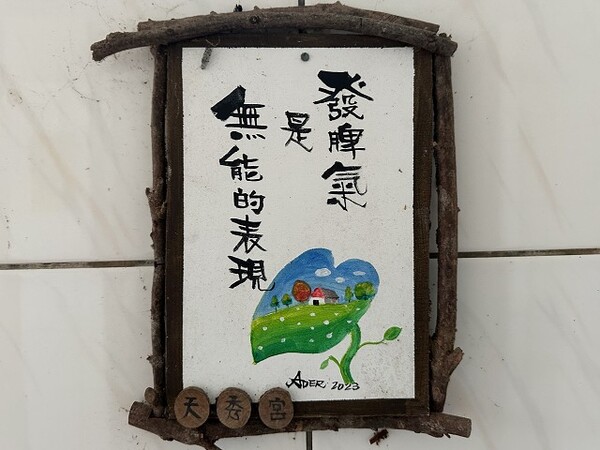 發脾氣
是
無能的表現
ADER 2023
天秀宮